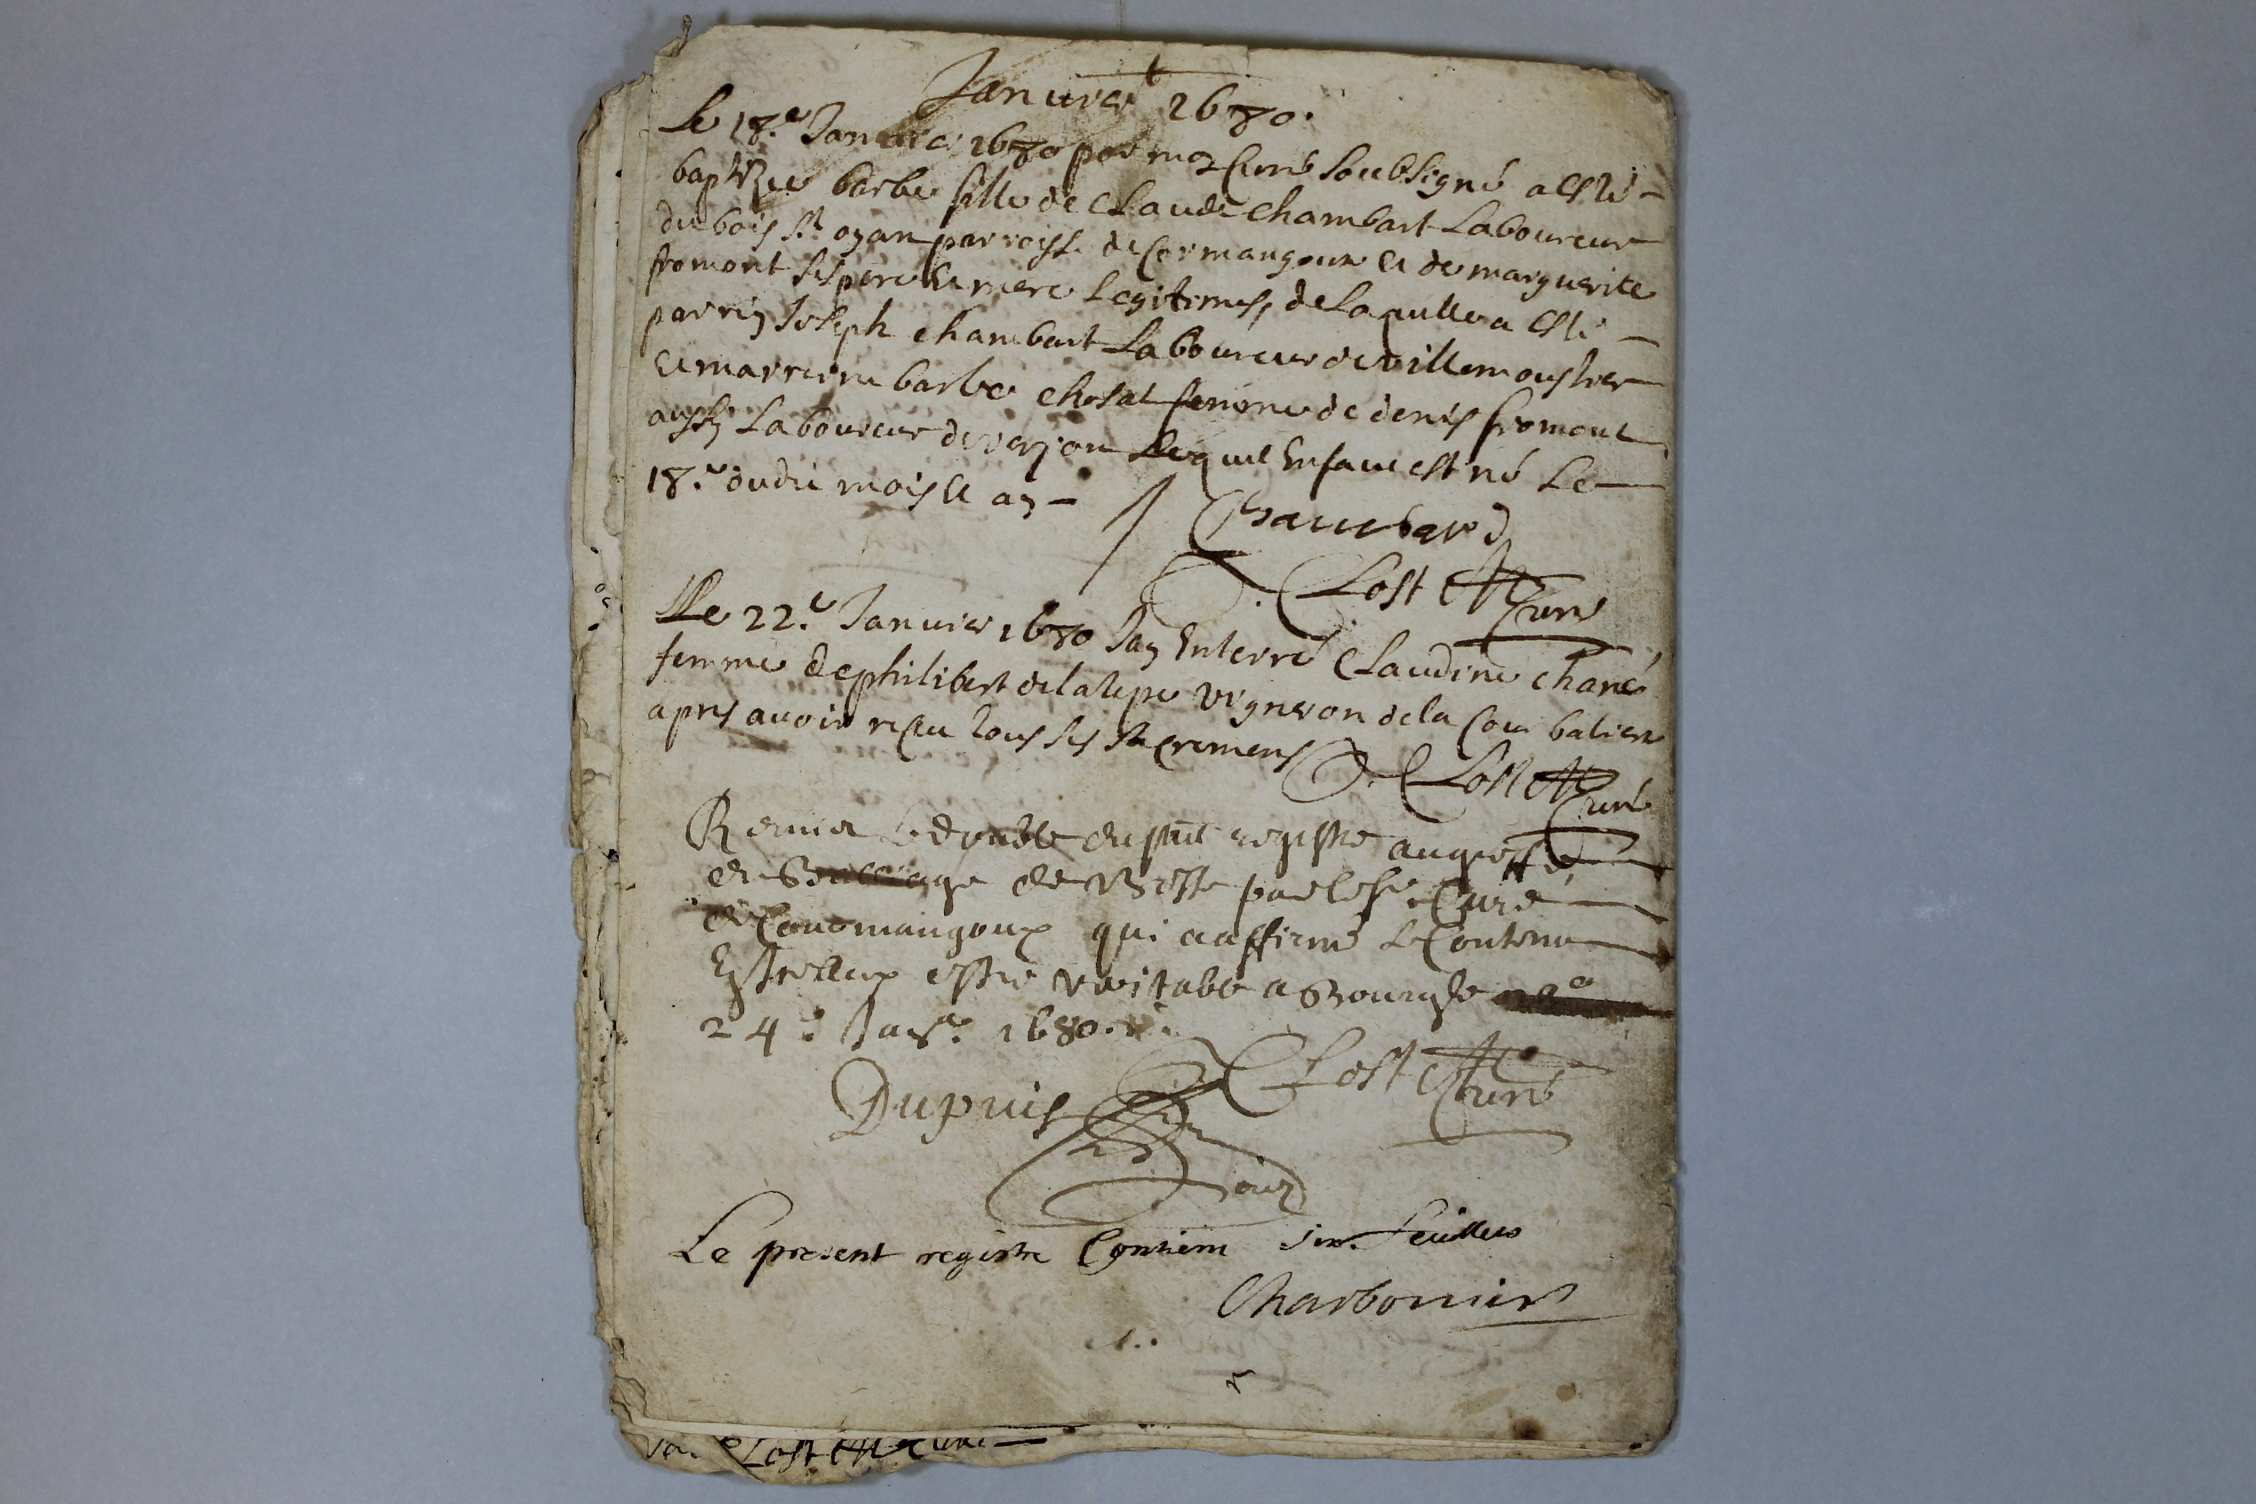 Januier 1680.
Le 18.e Januier 1680 par moy Curé soubsigné a esté
baptizee barbe fille de Claude Chambart Laboureur
du bois St oyan parroisse de Cormangoux et de marguerite
fromont ses pere et mere legitimes, de laquelle a esté
parrin Joseph Chambart Laboureur de villemoustier
et marreine barbe Chosat femme de denis fromont
aussy Laboureur de verjon Lequel Enfant est né Le
18.e dudit mois et an
Le 22.e Januier 1680 Jay Enterré Claudine Chané
femme de philibert delatepe vigneron de la Cour
apres auoir reçu tous ses sacremens
Lost Curé
Remis le double du pnt registre au greffe
du Bailliage de Bresse par le sr Curé
de Cormangoux qui a affirmé le Contenu
estre veritable a Bourg le
24.e Janr. 1680.
Dupuis
Lost Curé
Le present registre Contient six feuillets
Charbonnier
Lost Curé